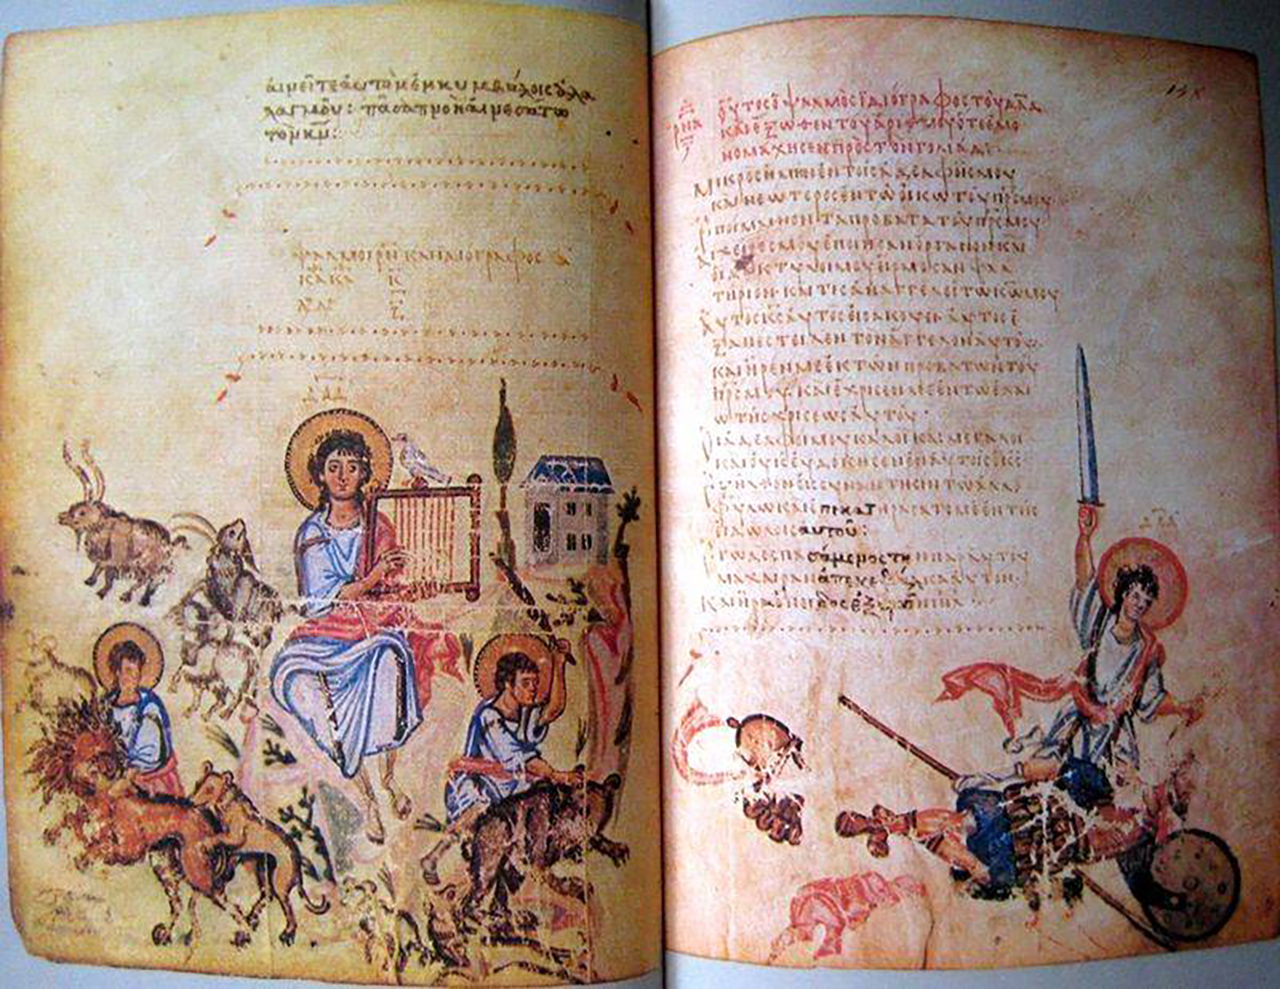 αἰνεῖτε αὐτὸν ἐν κυμβάλοις ἀλα
λαγμοῦ: πᾶσα πνοὴ αἰνεσάτω
τὸν κν:
ψαλμοὶ ρν καὶ ἰδιόγραφος α
δαδ
ρνα
οὗτος ὁ ψαλμὸς ἰδιόγραφος τοῦ δαδ
καὶ ἔξωθεν τοῦ ἀριθμοῦ ὅτε ἐμο
νομάχησεν πρὸς τὸν γολιάδ
Μικρὸς ἤμην ἐν τοῖς ἀδελφοῖς μου
καὶ νεώτερος ἐν τῷ οἴκῳ τοῦ πρς μου
ἐποίμαινον τὰ πρόβατα τοῦ πρς μου
αἱ χεῖρές μου ἐποίησαν ὄργανον καὶ
οἱ δάκτυλοί μου ἥρμοσαν ψαλ
τήριον καὶ τίς ἀναγγελεῖ τῷ κω μου
αὐτὸς κς αὐτὸς εἰσακούει αὐτὸς ἐ
ξαπέστειλεν τὸν ἄγγελον αὐτοῦ
καὶ ἦρέν με ἐκ τῶν προβάτων τοῦ
πρς μου καὶ ἔχρισέν με ἐν τῷ ἐλαί
ῳ τῆς χρίσεως αὐτοῦ
οἱ ἀδελφοί μου καλοὶ καὶ μεγάλοι
καὶ οὐκ εὐδόκησεν ἐν αὐτοῖς κς
ἐξῆλθον εἰς συνάντησιν τῷ ἀλλο
φύλῳ καὶ ἐπικατηράσατό με ἐν τοῖς
εἰδώλοις αὐτοῦ:
ἐγὼ δὲ σπασάμενος τὴν παρ' αὐτοῦ
μάχαιραν ἀπεκεφάλισα αὐτὸν
καὶ ἦρα ὄνειδος ἐξ υἱῶν ιηλ
δαδ